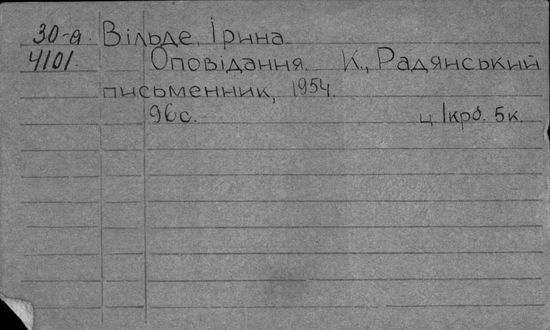 30-а. Вільде, Ірина
4101. Оповідання. К., Радянський
письменник, 1954.
96с. ц 1крб. 5к.